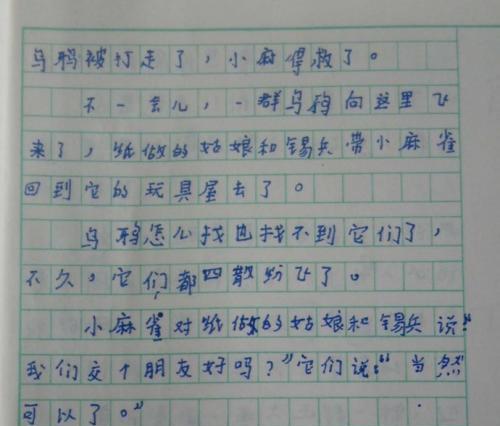 乌鸦被打走了，小麻得救了。
不一会儿，一群乌鸦向这里飞
来了，纸做的姑娘和锡兵带小麻雀
回到它的玩具屋去了。
乌鸦怎么找也找不到它们了，
不久，它们都四散纷飞了。
小麻雀对纸做的姑娘和锡兵说：“
我们交个朋友好吗？”它们说：“当然
可以了。”